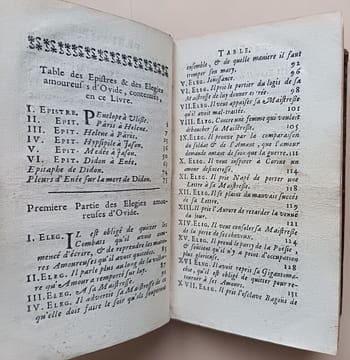 Table des Epistres & des Elegies
amoureuses d'Ovide, contenues,
en ce Livre.
I. EPISTRE. PEnelope à Ulisse.
II. EPIT. Paris à Helene.
III. EPIT. Helene à Paris.
IV. EPIT. Hypsipile à Jason.
V. EPIT. Medée à Jason.
VI. EPIT. Didon à Enée.
Epitaphe de Didon.
Pleurs d'Enée sur la Mort de Didon. 75
Premiere Partie des Elegies amou-
reuses d'Ovide.
I. ELEG. IL est obligé de quitter les
Combats qu'il avoit com-
mencé d'écrire, & de reprendre les matie-
res Amoureuses qu'il avoit quittées.
II. ELEG. Il parle plus au long de la victoi-
re qu'Amour a remporté sur luy.
III. ELEG. A sa Maistresse.
IV. ELEG. Il advertit sa Maistresse de ce
qu'elle doit faire le soir qu'ils souperont
TABLE.
ensemble, & de quelle maniere il faut
tromper son mary. 92
V. ELEG. Iouissance. 96
VI. ELEG. Il prie le portier du logis de sa
Maistresse de luy donner entrée. 98
VII. ELEG. Il veut appaiser sa Maistresse
qu'il avoit mal-traitée. 101
VIII. ELEG. Contre une femme qui vouloit
débaucher sa Maistresse. 105
IX. ELEG. Il prouve par la comparaison
du soldat & de l'Amant, que l'amour
demande autant de soin que la guerre. 112
X. ELEG. Il veut inspirer à Corine un
amour desinteressé. 114
XI. ELEG. Il prie Napé de porter une
Lettre à sa Maistresse. 118
XII. ELEG. Il se plaint du mauvais succés
de sa Lettre. 119
XIII. ELEG. Il prie l'Aurore de retarder la venuë
du jour. 121
XIV. ELEG. Il veut consoler sa Maistresse
de la perte de ses cheveux. 124
XV. ELEG. Il prend le party de la Poësie
& soûtient qu'il n'y a point d'occupation
plus glorieuse. 131
XVI. ELEG. Il avoit repris sa Giganto-
machie, qu'il est obligé de quitter pour re-
tourner à ses Amours.
XVII. ELEG. Il prie l'esclave Bagous de